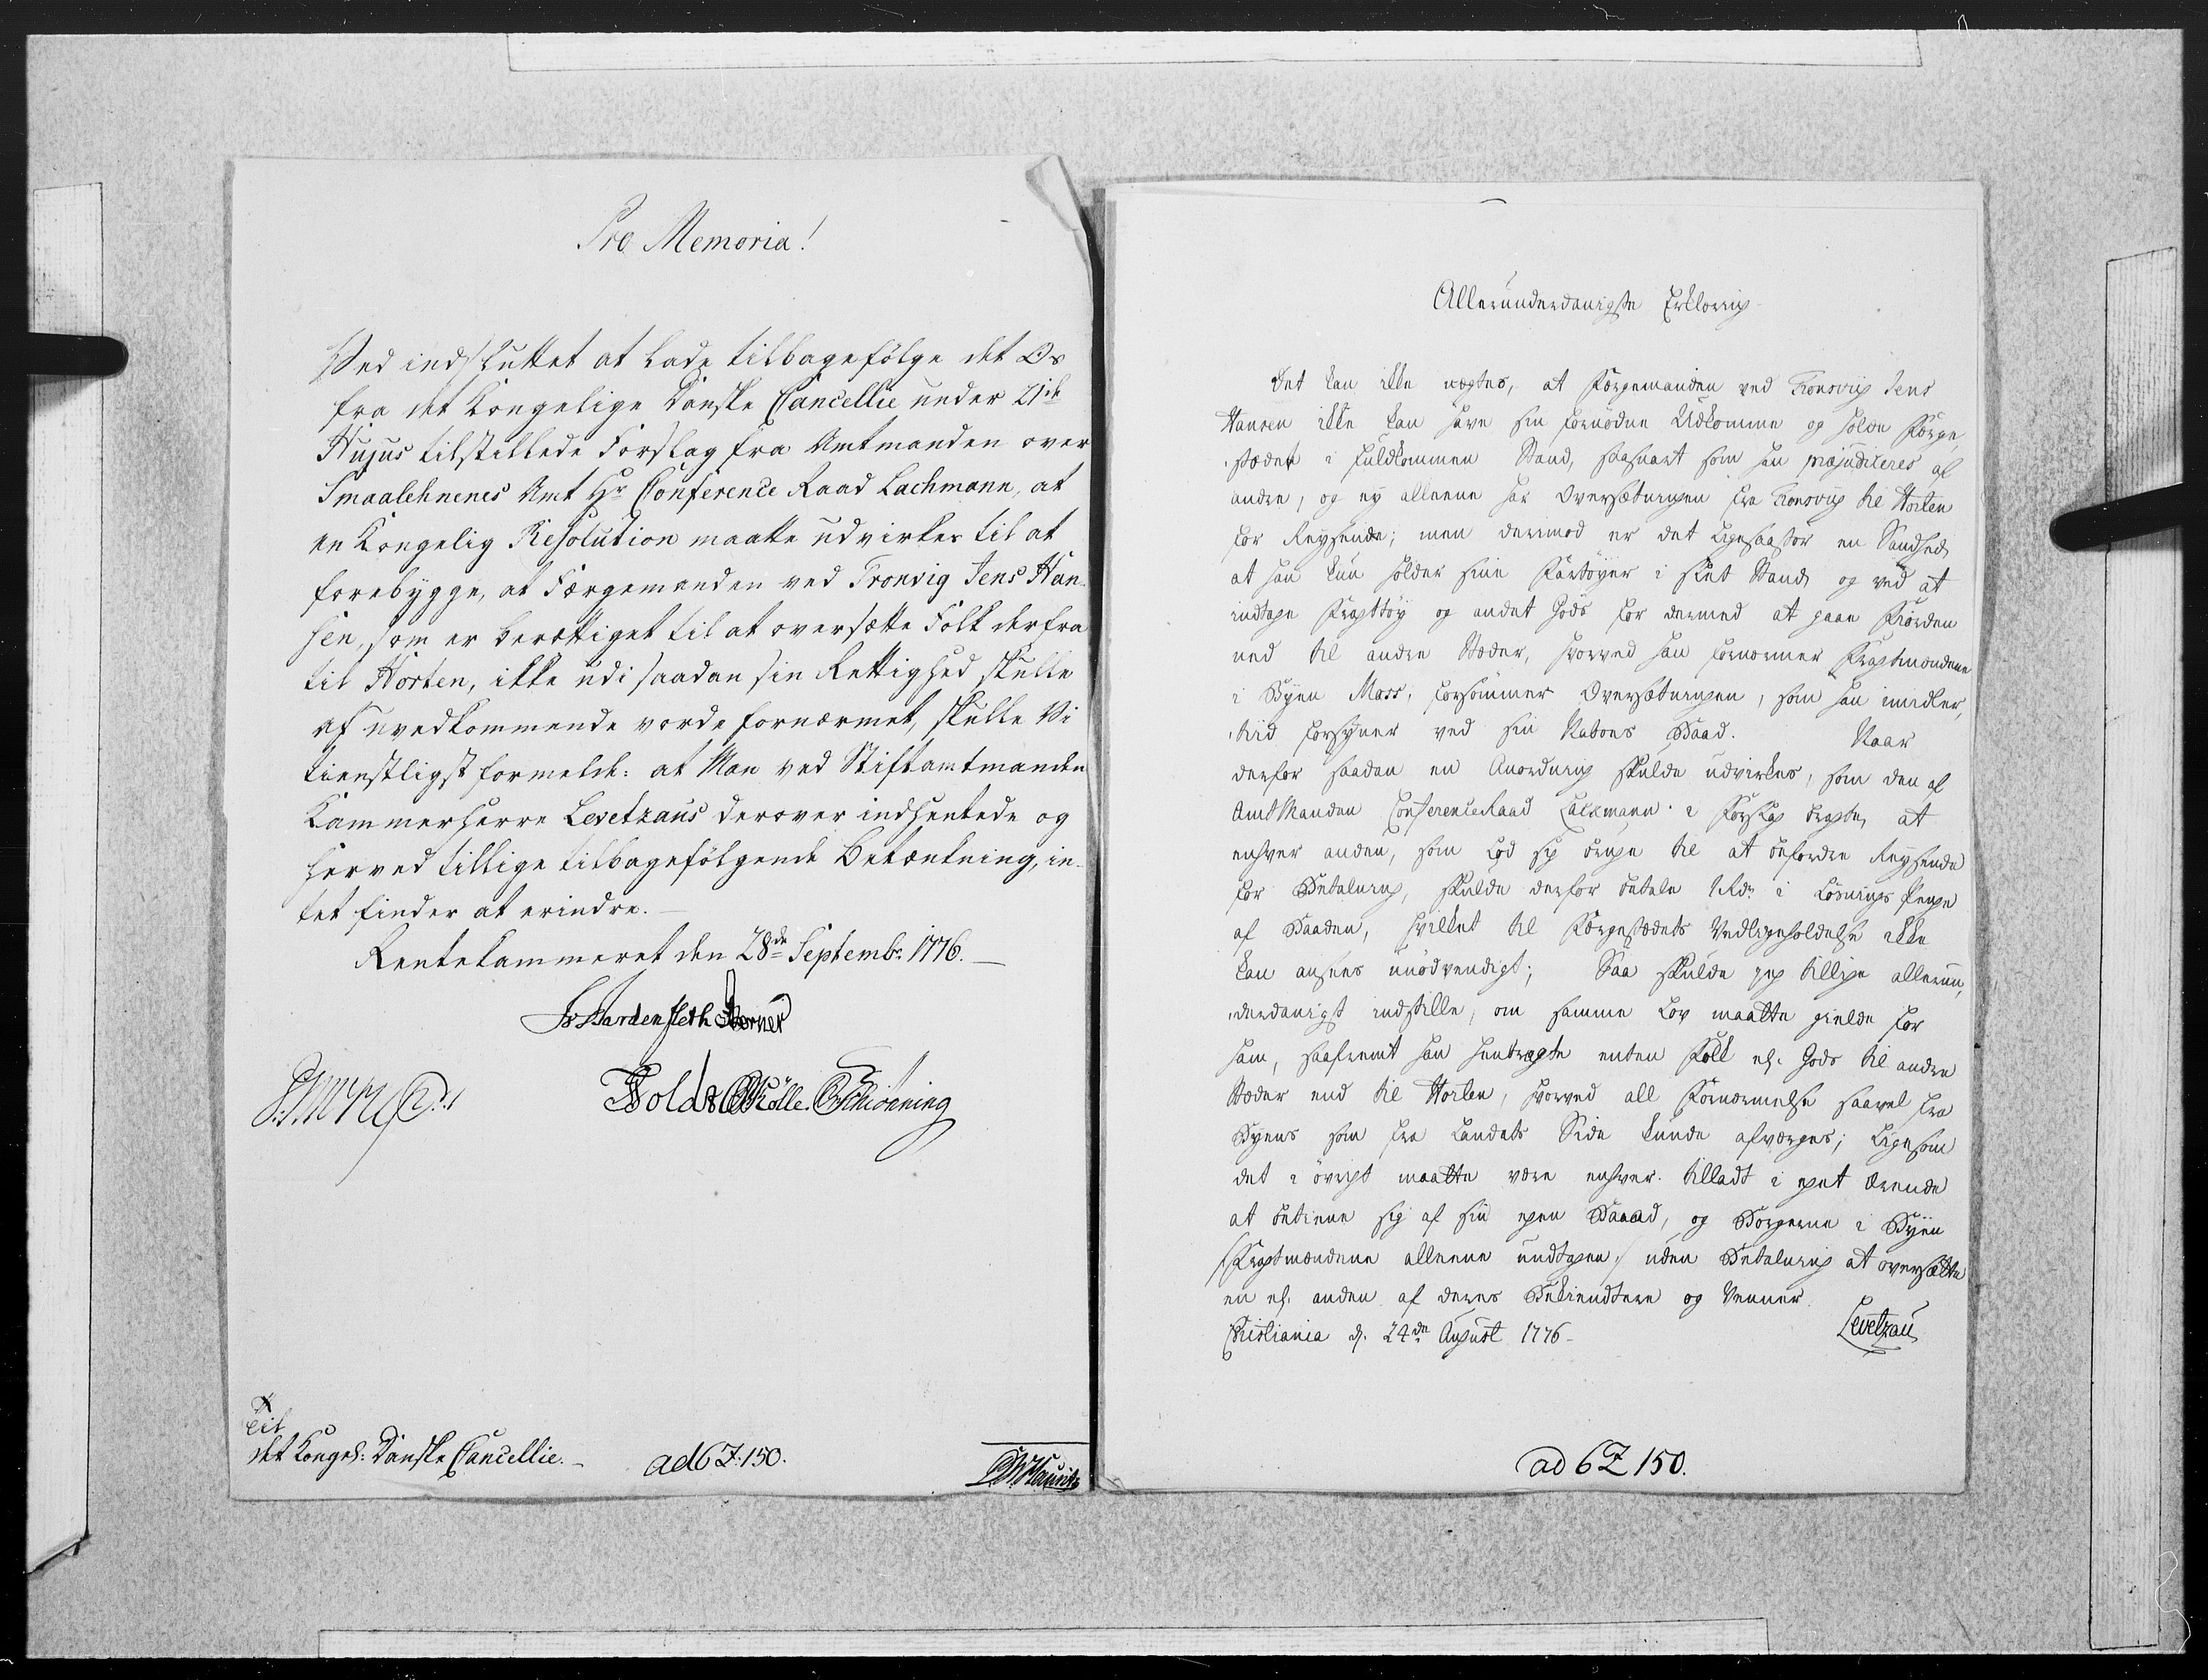 Pro Memoria!
Ved indsluttet at lade tilbagefölge det Os
fra det Kongelige Danske Cancellie under 21de
Hujus tilstillede Forslag fra Amtmanden over
Smaalehnenes Amt Hr Conference Raad Lachmann, at
en Kongelig Resolution maatte udvirkes til at
forebygge, at Færgemanden ved Tronvig Jens Han-
sen, som er berettiget til at oversætte Folk derfra
til Horten, ikke udi saadan sin Rettighed skulle
af uvedkommende vorde fornærmet, skulle Vi
tienstligst formelde: at Man ved Stiftamtmanden
Kammerherre Levetzaus derover indhentede og
herved tillige tilbagefölgende Betænkning, in-
tet finder at erindre.
Rentekammeret den 28de Septembr 1776.
Bardenfleth
Holdt Mölle. Schiönning
Til
det Kongel: Danske Cancellie.
ad 6 Z: 150.
Allerunderdanigste Erklæring
Det kan ikke nægtes, at Færgemanden ved Tronsvig Jens
Hansen ikke kan have sin fornödne Udkomme og holde Færge,
stædet i fuldkommen Stand, saasnart som han præjudiceres af
andre, og ey alleene har Oversætningen fra Tronsvig til Horten
for Reysende; men derimod er det ligesaastor en Sandhed
at han kun holder sine Fartöyer i slet Stand og ved at
indtage Fragttöy og andet Gods for dermed at gaae Fiorden
ned til andre Stæder, hvorved han fornærmer Fragtmændene
i Byen Moss, forsömmer Oversætningen, som han imidler,
tiid forsyner ved sin Naboes Baad. Naar
derfor saadan en Anordning skulde udvirkes, som den af
AmtManden ConferenceRaad Lachmann i Forslag bragte, at
enhver anden, som lod sig bruge til at befordre Reysende
for Betalning, skulde derfor betale 1 Rdr i Lösnings Penge
af Baaden, hvilket til Færgestædets Vedligeholdelse ikke
kan ansees unödvendigt; Saa skulde jeg tillige allerun,
derdanigst indstille, om samme Lov maatte gielde for
ham, saafremt han henbragte enten Folk el. Gods til andre
Stæder end til Horten, hvorved all Fornærmelse saavel fra
Byens som fra Landets Side kunde afværges; ligesom
det i övrigt maatte være enhver tilladt i eget Ærende
at betiene sig af sin egen Baaad, og Borgerne i Byen
/:Fragtmændene alleene undtagen:/ uden Betalning at oversætte
en el. anden af deres Bekiendtere og Venner.
Christiania d. 24de August 1776-
Levetzau
ad 6 Z 150.